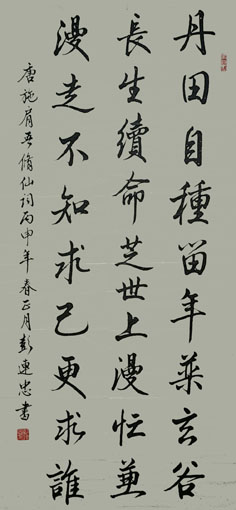 丹田自種留年藥玄谷
長生續命芝世上漫忙兼
漫走不知求己更求誰
唐施肩吾脩仙詞丙申年春正月彭連忠書